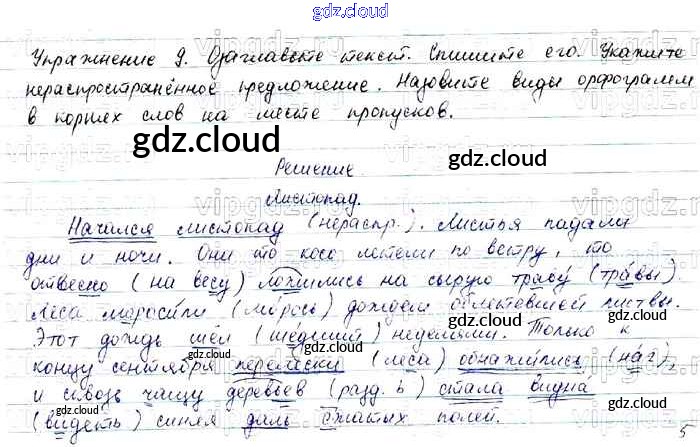 gdz.cloud
Упражнение 9. Озаглавьте текст. Спишите его. Укажите
нераспространённое предложение. Назовите виды орфограмем
в корнях слов на месте пропусков.
gdz.cloud
gdz.cloud
Решение.
Листопад.
Начался листопад (нераспр.). Листья падали
дни и ночи. Они то косо летели по ветру, то
отвесно (на весу) ложились на сырую траву (травы).
Леса моросили (морось) дождём облетевшей листвы.
Этот дождь шёл (шедший) неделями. Только к
концу сентября перелески (леса) обнажились (наг),
и сквозь чащу деревьев (разд. ь) стала видна
(видеть) синяя даль сжатых полей.
gdz.cloud
gdz.cloud
5